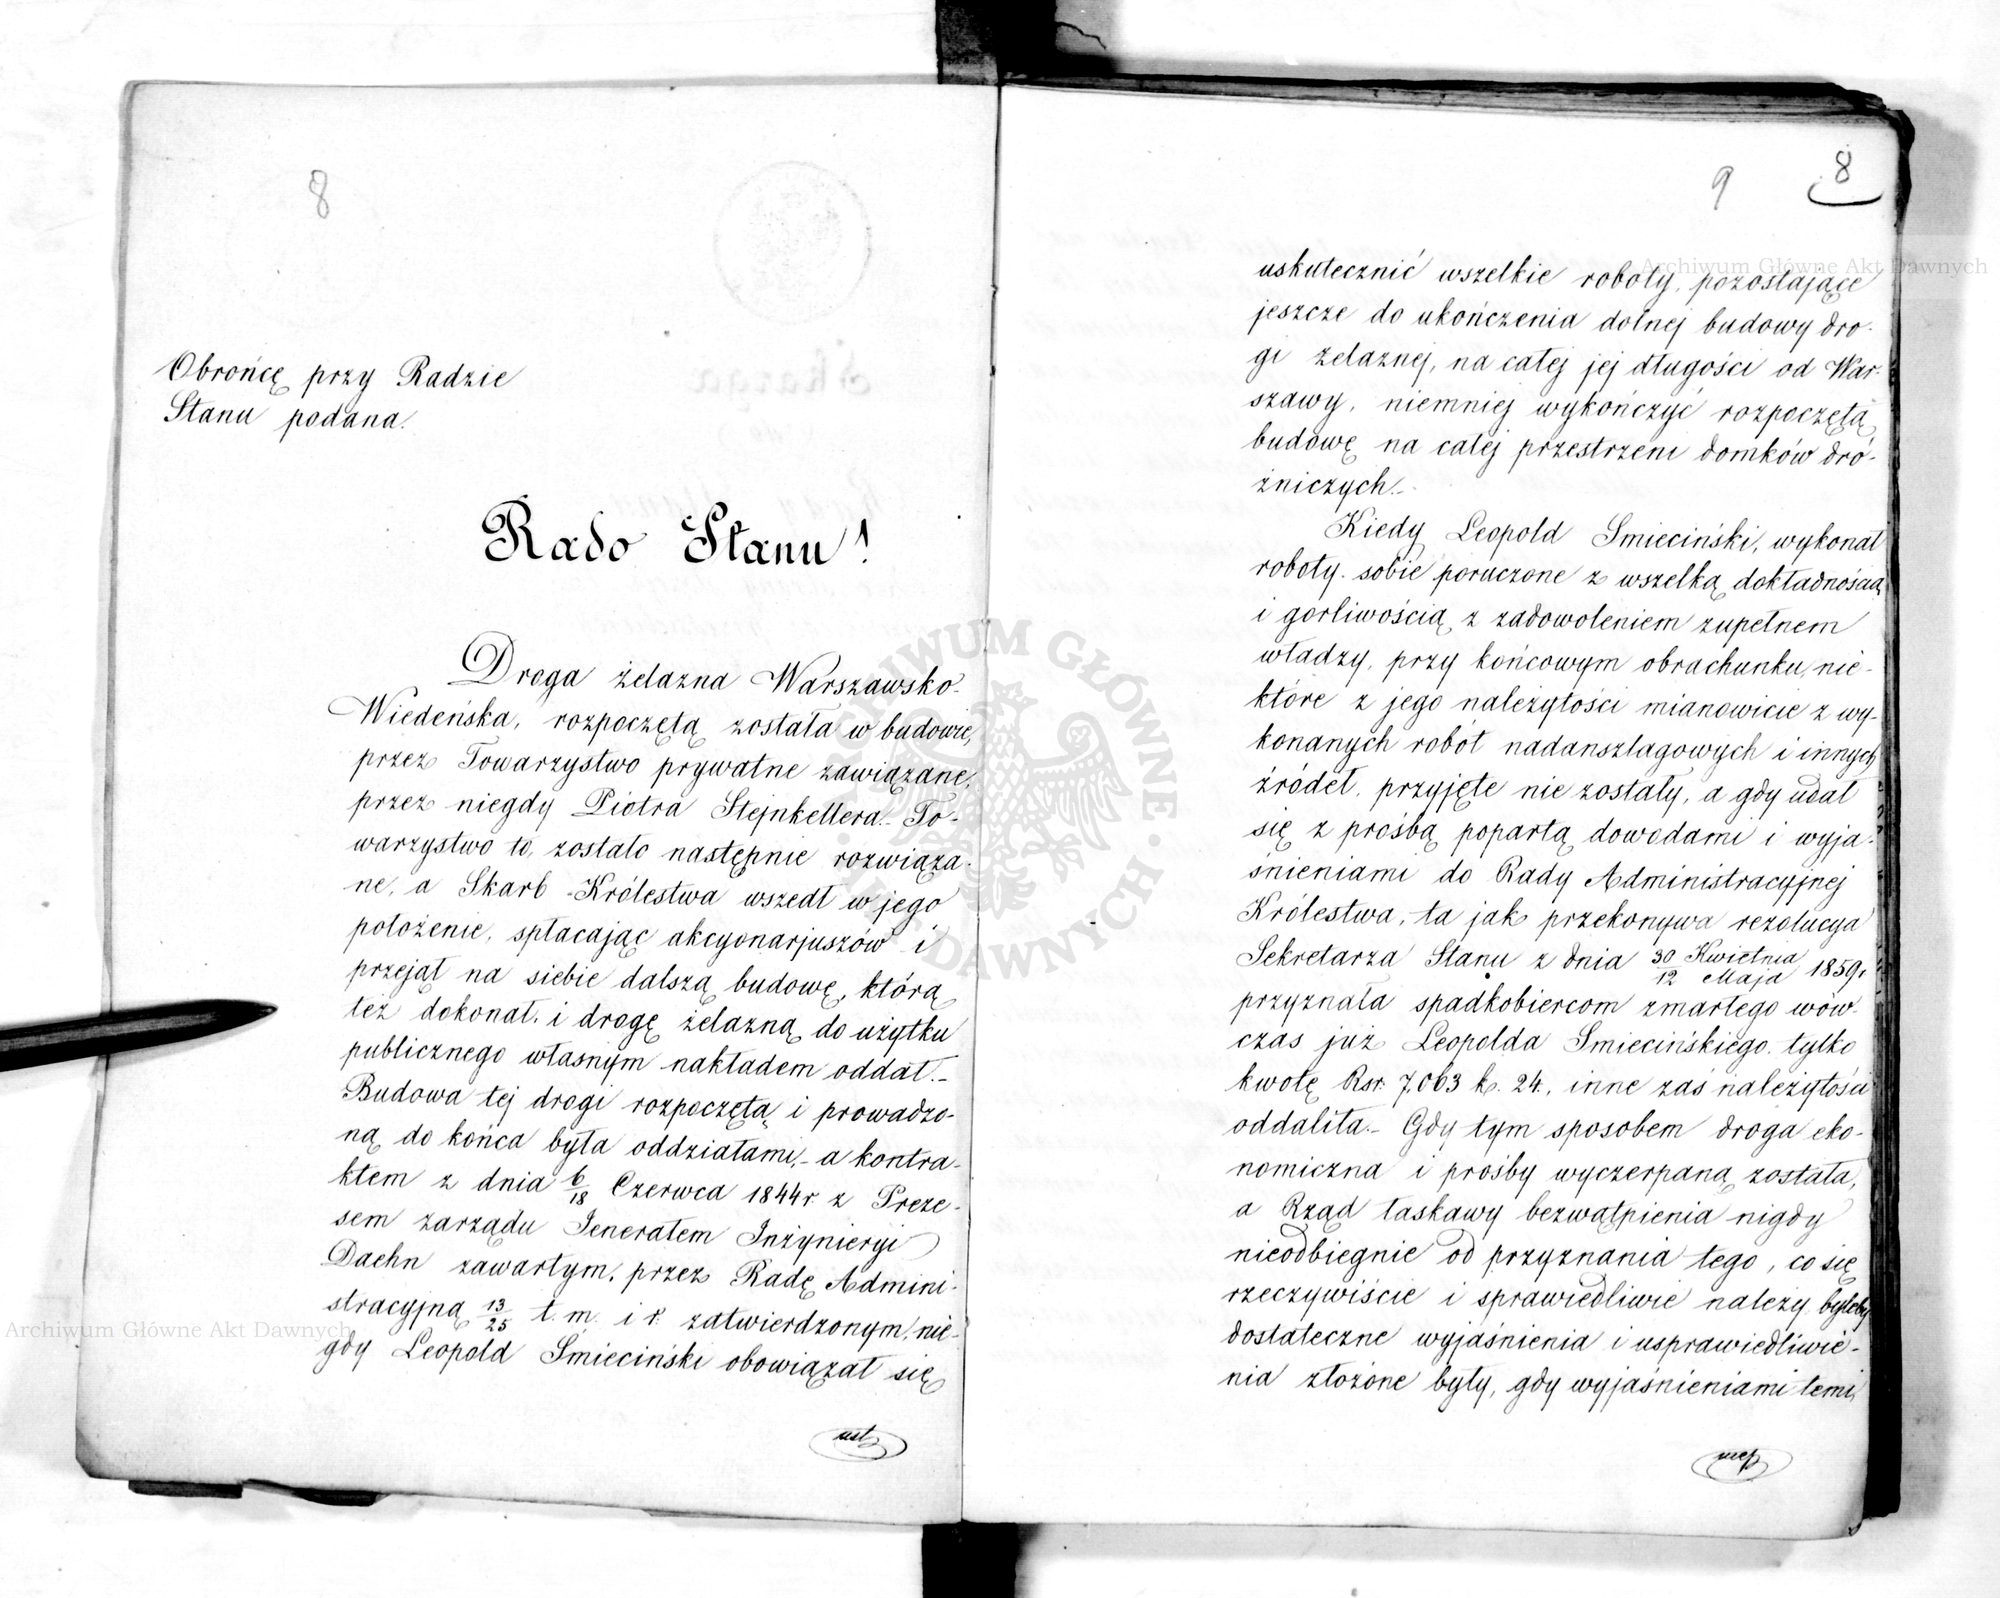 8
Obrońcę przy Radzie
Stanu podana.
Rado Stanu!
Droga żelazna Warszawsko-
Wiedeńska, rozpoczętą została w budowie,
przez Towarzystwo prywatne zawiązane,
przez niegdy Piotra Stejnkellera. To-
warzystwo to, zostało następnie rozwiąza-
ne, a Skarb Królestwa wszedł w jego
położenie, spłacając akcyonarjuszów i
przejął na siebie dalszą budowę, którą
też dokonał, i drogę żelazną do użytku
publicznego własnym nakładem oddał.-
Budowa tej drogi rozpoczętą i prowadzo-
ną do końca była oddziałami,- a kontra-
ktem z dnia 6/18 Czerwca 1844 r. z Preze-
sem zarządu Jenerałem Inżynieryi
Daehn zawartym, przez Radę Admini-
stracyjną 13/25 t. m. i r. zatwierdzonym, nie-
gdy Leopold Śmieciński obowiązał się
9 8
uskutecznić wszelkie roboty, pozostające
jeszcze do ukończenia dolnej budowy dro-
gi żelaznej, na całej jej długości od War-
szawy, niemniej wykończyć rozpoczętą
budowę na całej przestrzeni domków dró-
żniczych.-
Kiedy Leopold Smieciński, wykonał
roboty sobie poruczone z wszelką dokładnością
i gorliwością z zadowoleniem zupełnem
władzy, przy końcowym obrachunku, nie-
które z jego należytości mianowicie z wy-
konanych robót nadanszlagowych i innych
źródeł, przyjęte nie zostały, a gdy udał
się z prośbą popartą dowodami i wyja-
śnieniami do Rady Administracyjnej
Królestwa, ta jak przekonywa rezolucya
Sekretarza Stanu z dnia 30 Kwietnia/12 Maja 1859 r.
przyznała spadkobiercom zmarłego wów-
czas już Leopolda Smiecińskiego tylko
kwotę Rsr. 7,063 k. 24, inne zaś należytości
oddaliła.- Gdy tym sposobem droga eko-
nomiczna i prośby wyczerpaną została,
a Rząd łaskawy bezwątpienia nigdy
nieodbiegnie od przyznania tego, co się
rzeczywiście i sprawiedliwie należy byleby
dostateczne wyjaśnienia i usprawiedliwie-
nia złożone były, gdy wyjaśnieniami temi
Archiwum Główne Akt Dawnych
Archiwum Główne Akt Dawnych
ARCHIWUM GŁÓWNE AKT DAWNYCH